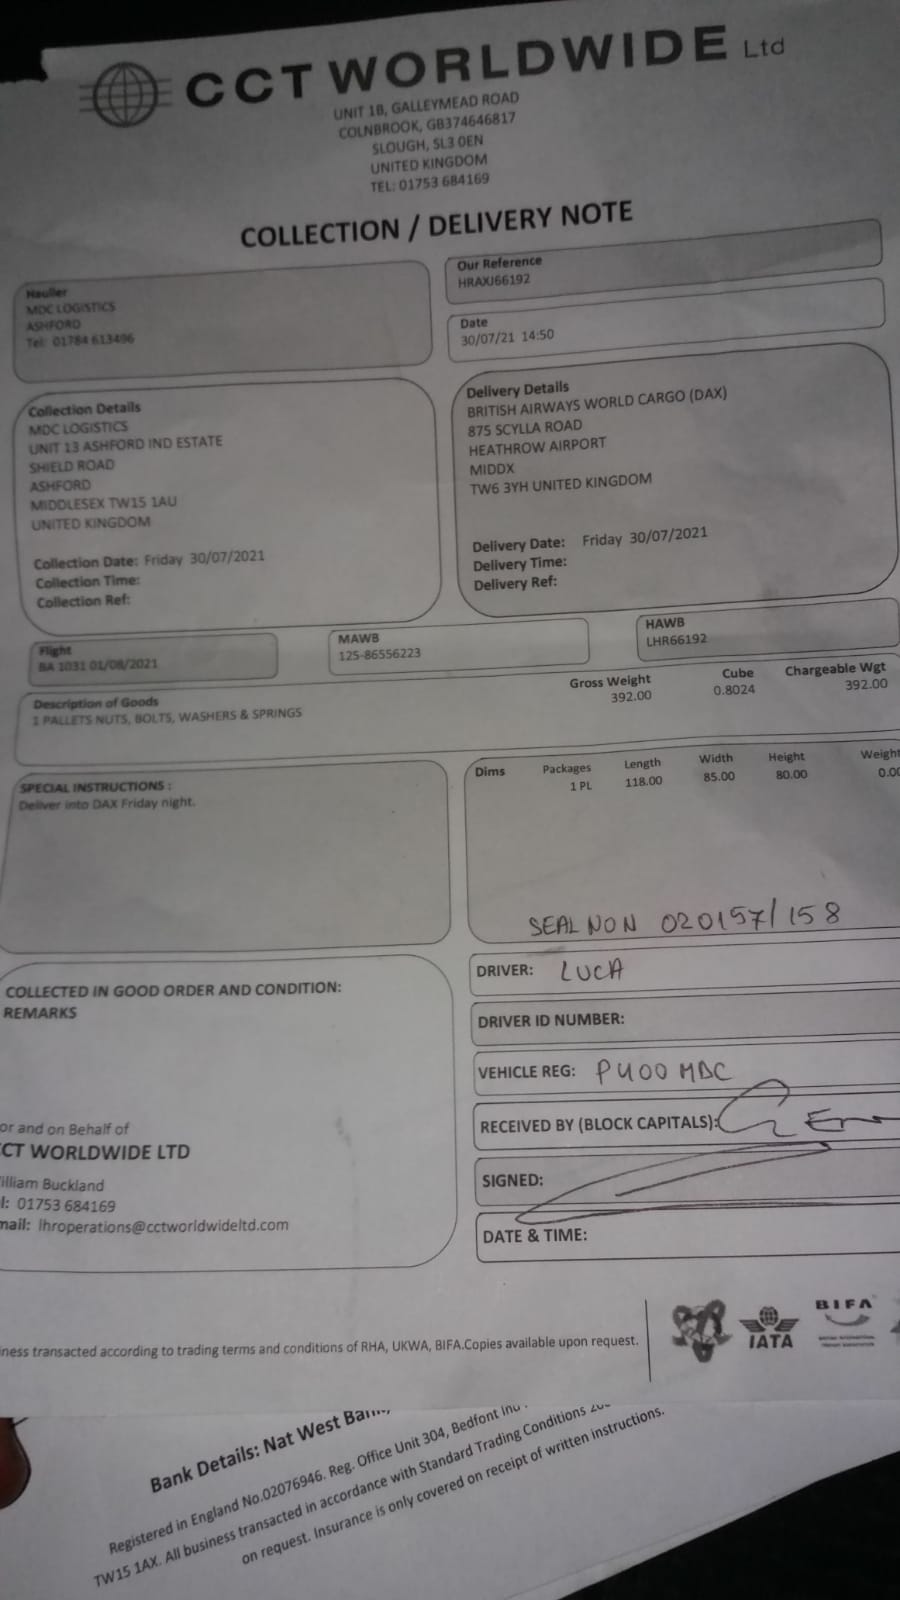 CCT WORLDWIDE Ltd
UNIT 1B, GALLEYMEAD ROAD
COLNBROOK, GB374646817
SLOUGH, SL3 0EN
UNITED KINGDOM
TEL: 01753 684169
COLLECTION / DELIVERY NOTE
Haulier
MDC LOGISTICS
ASHFORD
Tel: 01784 613496
Our Reference
HRAXJ66192
Date
30/07/21 14:50
Collection Details
MDC LOGISTICS
UNIT 13 ASHFORD IND ESTATE
SHIELD ROAD
ASHFORD
MIDDLESEX TW15 1AU
UNITED KINGDOM
Collection Date: Friday 30/07/2021
Collection Time:
Collection Ref:
Delivery Details
BRITISH AIRWAYS WORLD CARGO (DAX)
875 SCYLLA ROAD
HEATHROW AIRPORT
MIDDX
TW6 3YH UNITED KINGDOM
Delivery Date: Friday 30/07/2021
Delivery Time:
Delivery Ref:
Flight
BA 1031 01/08/2021
MAWB
125-86556223
HAWB
LHR66192
Description of Goods
1 PALLETS NUTS, BOLTS, WASHERS & SPRINGS
Gross Weight Cube Chargeable Wgt
392.00 0.8024 392.00
SPECIAL INSTRUCTIONS :
Deliver into DAX Friday night.
Dims Packages Length Width Height Weight
1 PL 118.00 85.00 80.00 0.00
SEAL NON 020157/158
DRIVER: LUCA
DRIVER ID NUMBER:
VEHICLE REG: P400 MDC
RECEIVED BY (BLOCK CAPITALS):
SIGNED:
DATE & TIME:
COLLECTED IN GOOD ORDER AND CONDITION:
REMARKS
or and on Behalf of
CT WORLDWIDE LTD
illiam Buckland
l: 01753 684169
mail: lhroperations@cctworldwideltd.com
iness transacted according to trading terms and conditions of RHA, UKWA, BIFA.Copies available upon request.
IATA
BIFA
Bank Details: Nat West Bank,
Registered in England No.02076946. Reg. Office Unit 304, Bedfont
TW15 1AX. All business transacted in accordance with Standard Trading Conditions
on request. Insurance is only covered on receipt of written instructions.